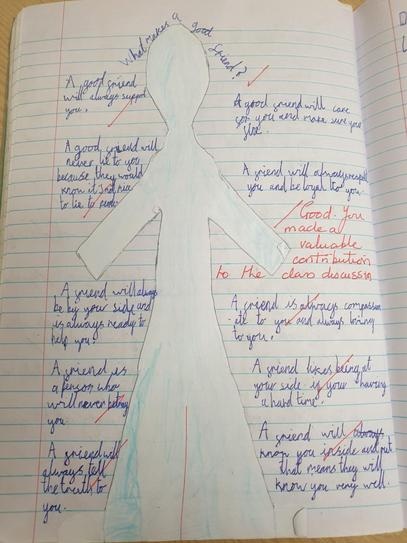 What makes a good friend?
A good friend
will always support
you.
A good friend will
never lie to you
because they would
know it is not nice
to lie to
A friend will always
be by your side and
is always ready to
help you.
A friend is
a person who
will never betray
you
A friend will
always tell
the truth to
you.
A good friend will care
for you and make sure your
fine.
A friend will always
you and be loyal to you.
Good. You
made a
valuable
contribution
to the class discussion
A friend is always compassion
ate to you and always loving
to you.
A friend likes being at
your side if your having
a hard time.
A friend will
know you inside and out
that means they will
know you very well.